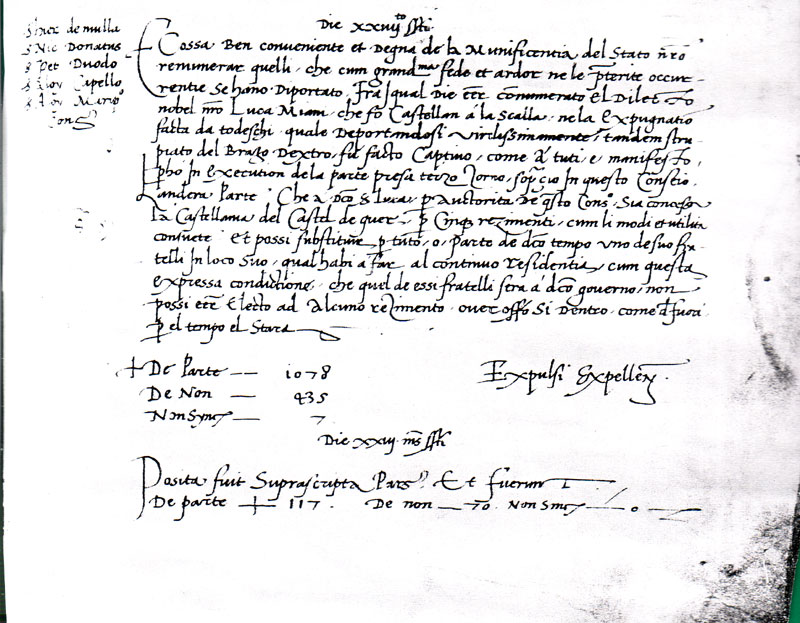 Die XXVIIJto ssti
de mulla
s Nic Donatus
s Pet Duodo
s Alov Capello
s Alov
Cons
Cossa Ben conveniente et Degna de la Munificentia del Stato nro
remunerar quelli, che cum grandma fede et ardor ne le pterite occur-
rentie se hano Diportato, Fra i qual die eer connumerato el Dilecto
nobel nro Luca Miani, che fo Castellan a la Scalla, ne la expugnatio
facta da todeschi quale Deportandosi virilissimamente, tandem stru-
piato del Brazo Dextro, fu facto Captivo, come a tuti e manifesto,
Pho In execution de la parte presa terzo zorno, sopra cio In questo Conseio
Landera Parte Che a dco s Luca p Auctorita de qsto Cons Sia concesso
la Castellania del Castel de quer p Cinq rezimenti, cum li modi et utilita
consuete Et possi substituir p tuto, o, parte de dco tempo uno de suo fra-
telli In loco suo, qual habi a far al continuo residentia, cum questa
expressa condictione, che quel de essi fratelli sera a dco governo, non
possi eer Electo ad Alcuno rezimento over offo Si Dentro come d fuora
p el tempo el Stara
+ De Parte — 1078
De Non — 435
Non Syncere — 7
Expulsi Expellen
Die XXVIJ ms ssti
Posita fuit Suprascripta Pars Et fuerunt
De parte + 117. De non — 70. Non Sync — 0